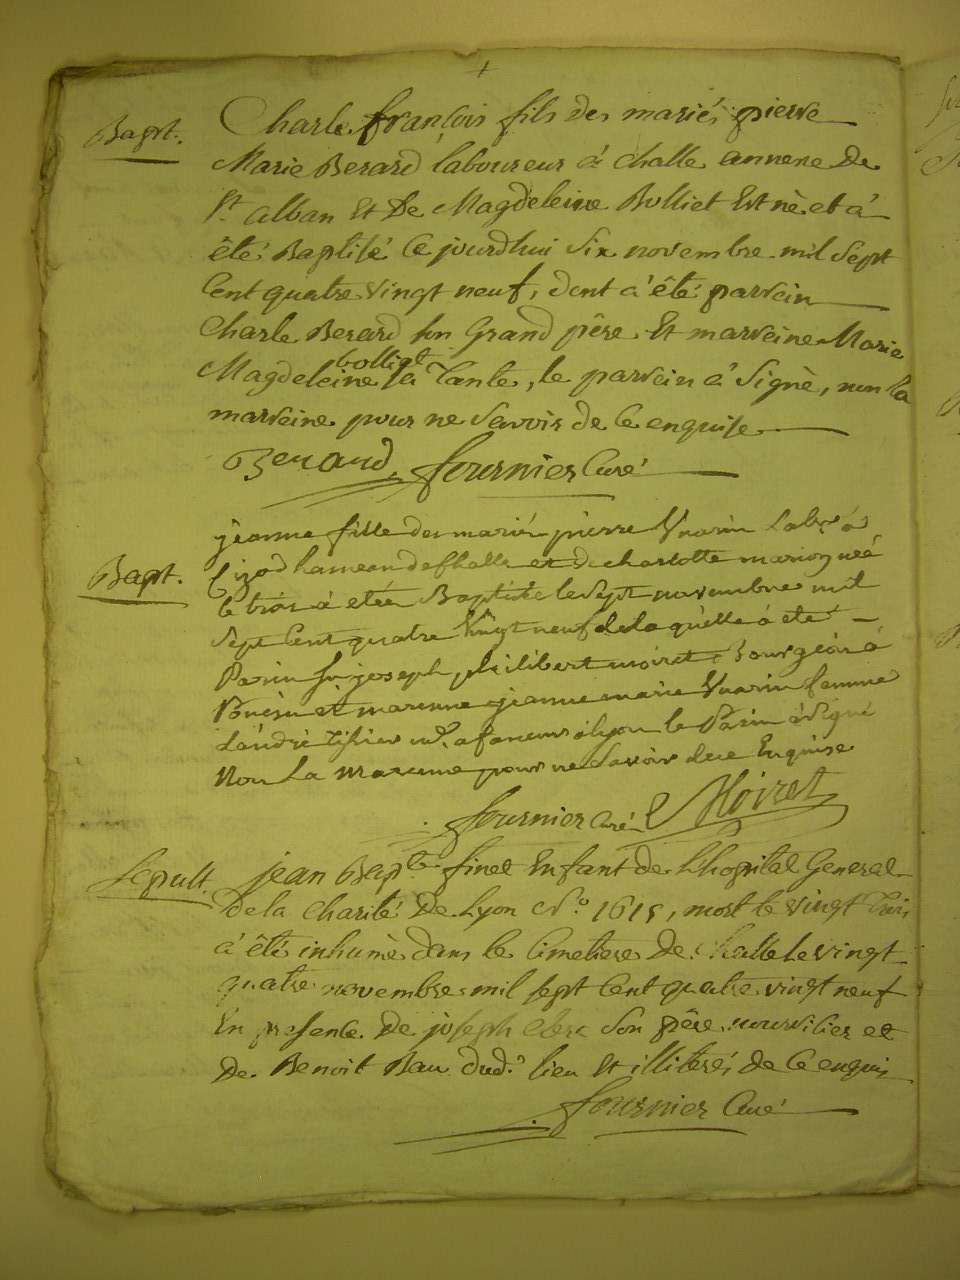 Bapt.
Charle françois fils des mariés pierre
Marie Berard laboureur à challe annexe de
St alban Et De Magdeleine Bolliet Est nè et à
été Baptisé Ce jourdhui Six novembre mil Sept
Cent quatre vingt neuf, dont à été parrein
Charle Berard son Grand père Et marreine Marie
Magdeleine bolliet sa Tante, le parrein à Signè, non la
marreine pour ne Savoir de Ce enquise
Berard, fournier Curé
Bapt.
jeanne fille des mariés pierre Vuarin Labr à
hameau de challe et de charlotte marion neé
le trois à eteé Baptisée le Sept novembre mil
Sept Cent quatre Vingt neuf de laquelle à eté
Parin Sr joseph philibert moiret Bourgeois à
et marenne jeanne marie Vuarin femme
d'andré à lyon le Parin à Signé
Non La marenne pour ne Savoir de ce Enquise
fournier Curé Moiret
Sepult.
jean Bapte finet Enfant de L'hopital General
De la Charité De Lyon No. 1615, mort le vingt trois
à été inhumè dans le Cimetiere De Challe le vingt
quatre novembre mil sept Cent quatre vingt neuf
En presence De joseph Clerc Son père nourricier et
De Benoit Bau dud. lieu Et illiterés de Ce enquis
fournier Curé